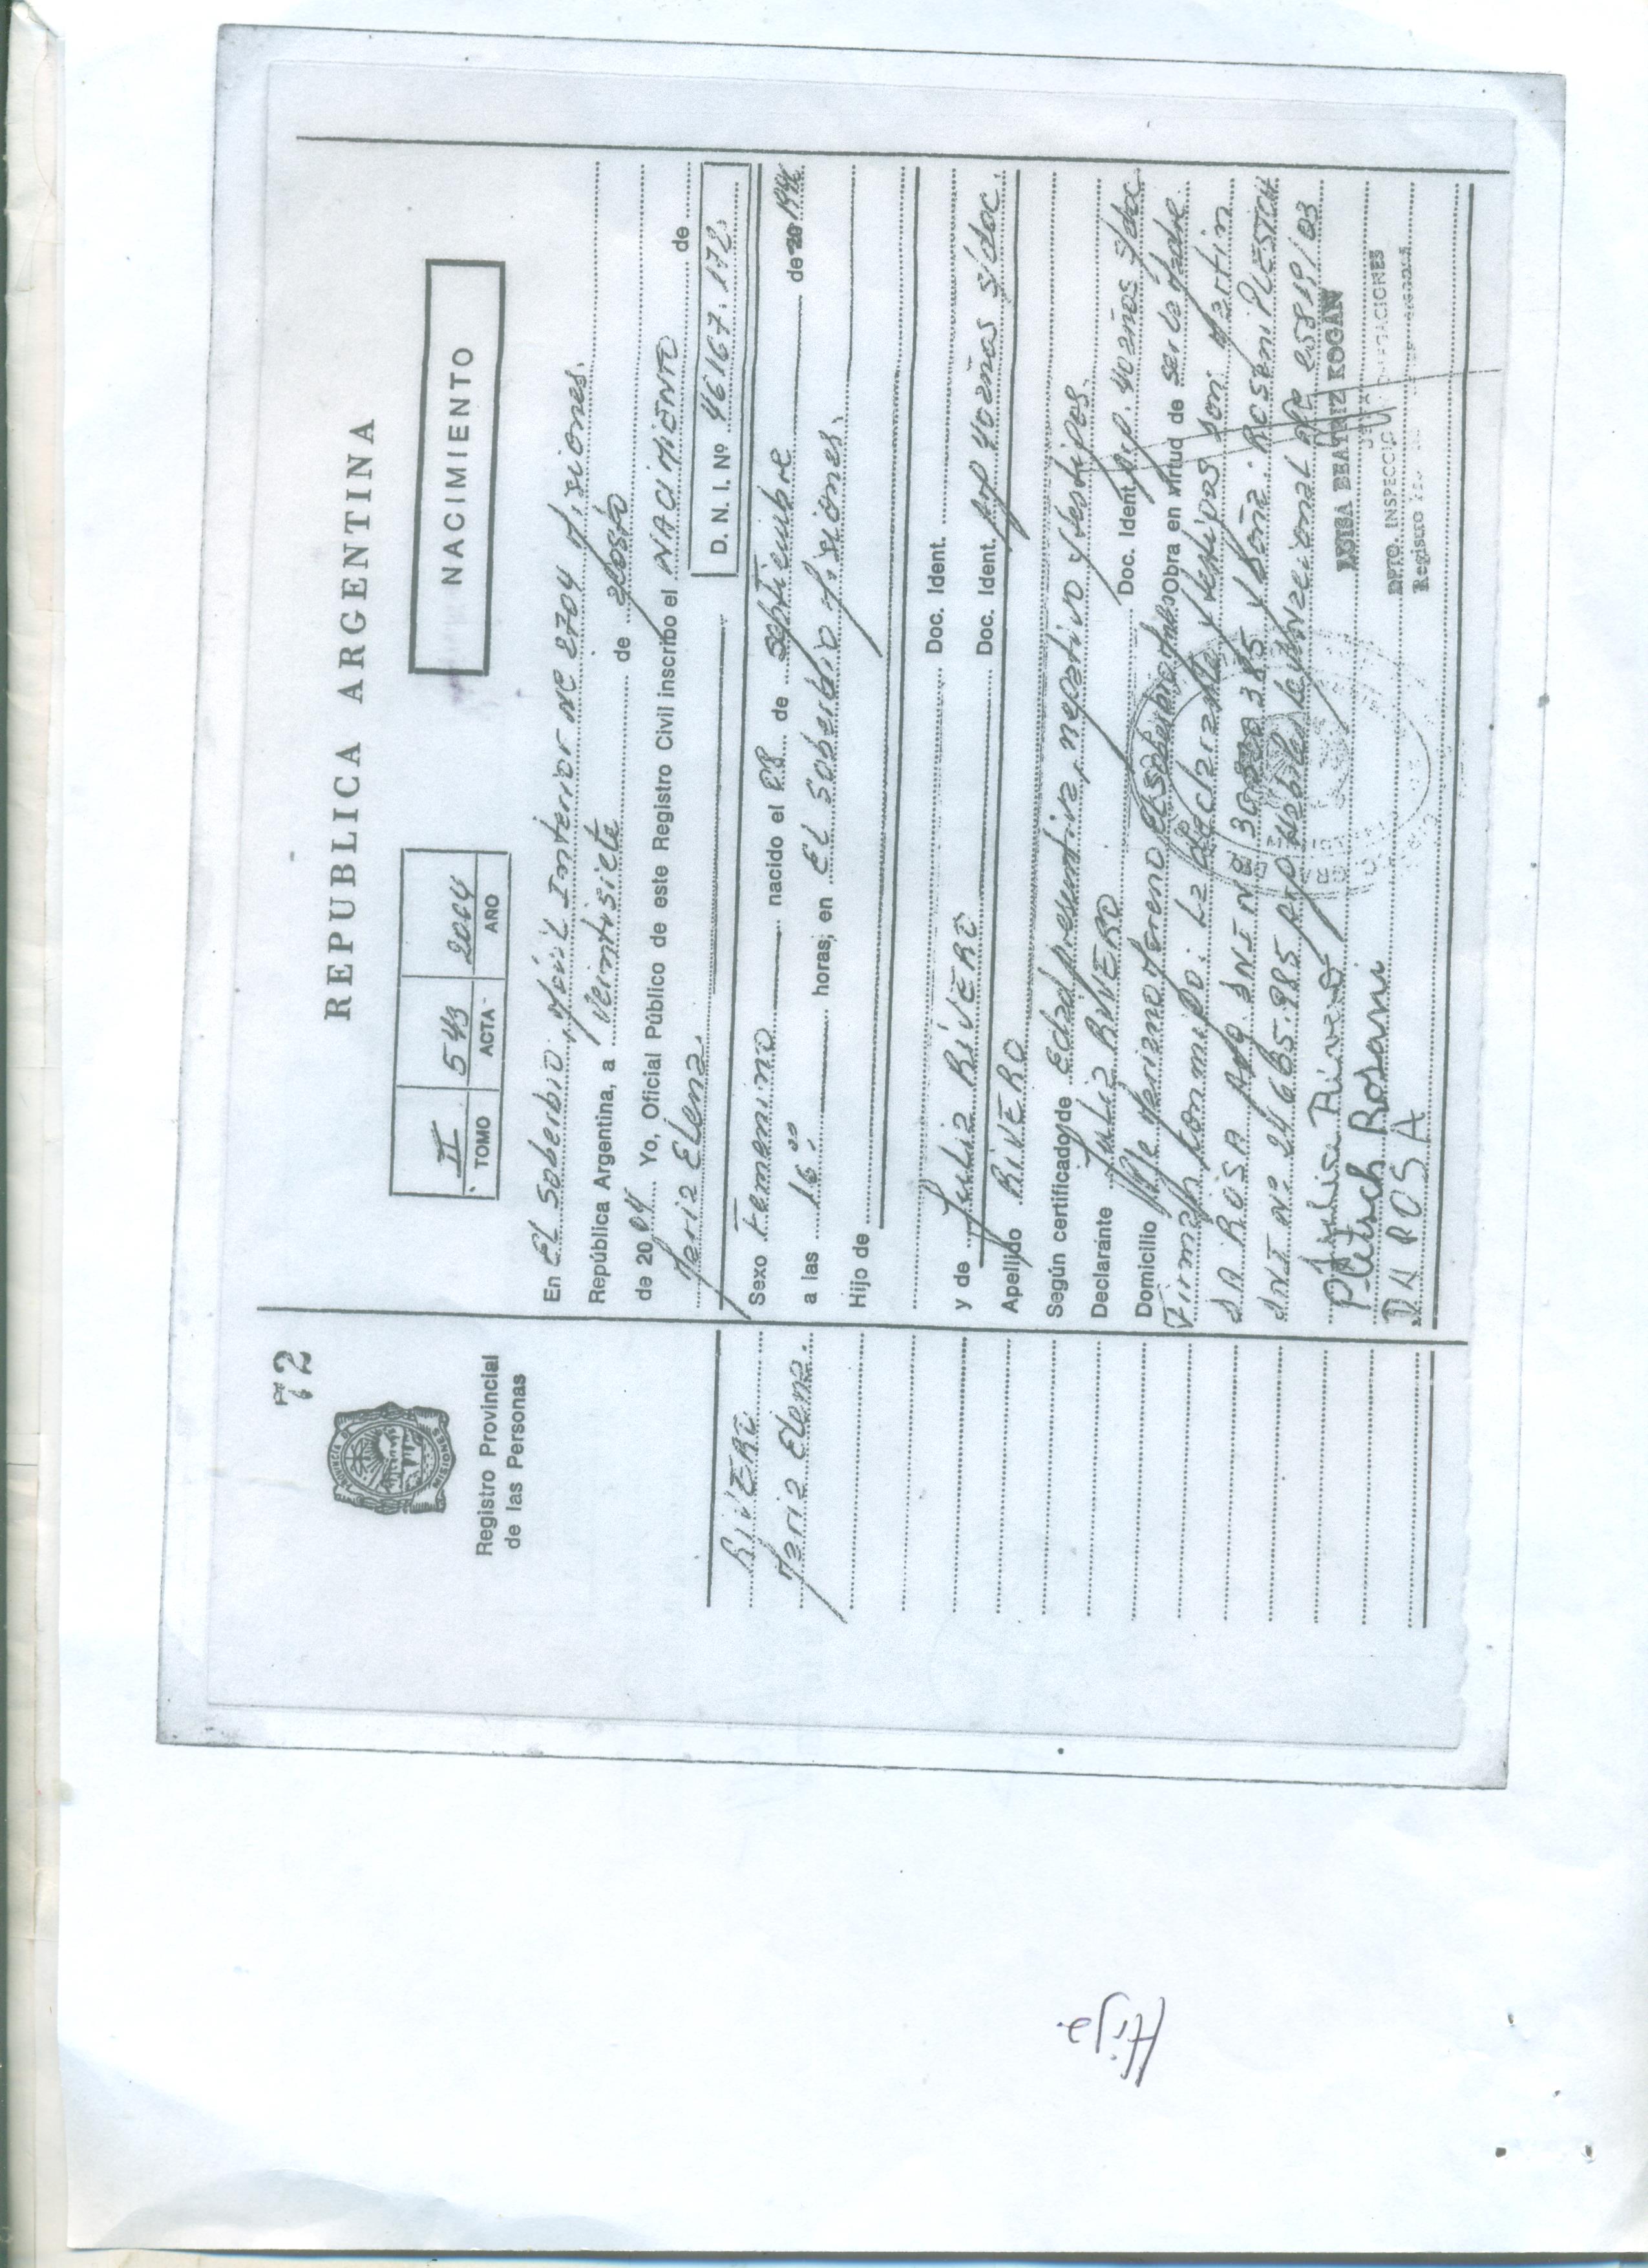 72
PROVINCIA DE MISIONES
Registro Provincial
de las Personas
RIVERO
María Elena.
REPUBLICA ARGENTINA
II 543 2004
TOMO ACTA AÑO
NACIMIENTO
En El Soberbio, Móvil Interior Nº 2704 Misiones.
República Argentina, a Veintisiete de agosto
de 2004 Yo, Oficial Público de este Registro Civil inscribo el NACIMIENTO de
María Elena. D. N. I. Nº 46167.172.
Sexo Femenino nacido el 08 de septiembre de
a las 16:00 horas, en El Soberbio Misiones.
Hijo de
Doc. Ident.
y de Julia RIVERO Doc. Ident. 40 años s/doc.
Apellido RIVERO
Según certificado de Edad presuntiva, negativo y testigos.
Declarante Julia RIVERO Doc. Ident. 40 años s/doc
Domicilio Obra en virtud de ser la Madre
Firman conmigo: La declarante y testigos son: Martin
DA ROSA DNI Nº y Doña: Rosani PLESTCH
DNI Nº 24.665.985
Julia Rivero
Pletsch Rosani
DA ROSA
LUISA BEATRIZ KOGAN
DPTO. INSPECCION
Registro
Hija.